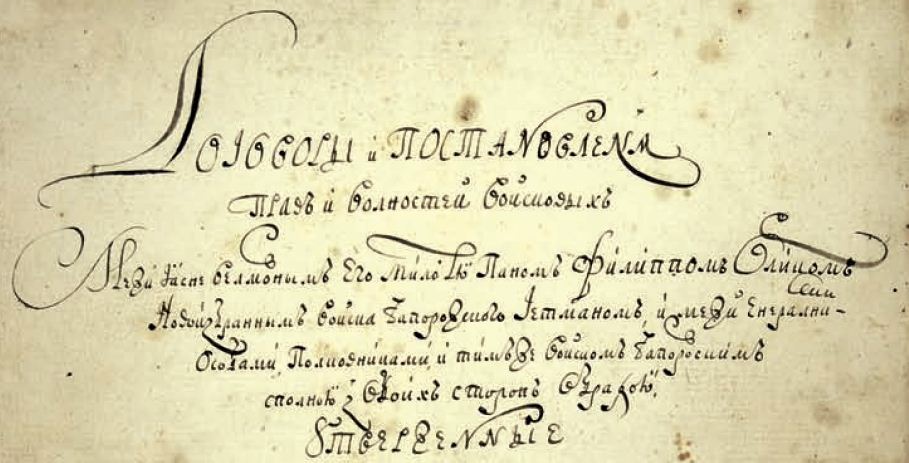 Договоры и ПОСТАНОВЛЕНѦ
Правъ и волностей войсковыхъ
Межи Ясне велможнымъ Его Милостю Паномъ Филиппомъ Орликомъ
Новоизбраннымъ войска Запорожского Гетманомъ, и межи Енералними
Особами, Полковниками, и тимъ же войскомъ Запорожскимъ
сполною з обоихъ сторонъ обрадою,
Утверженные